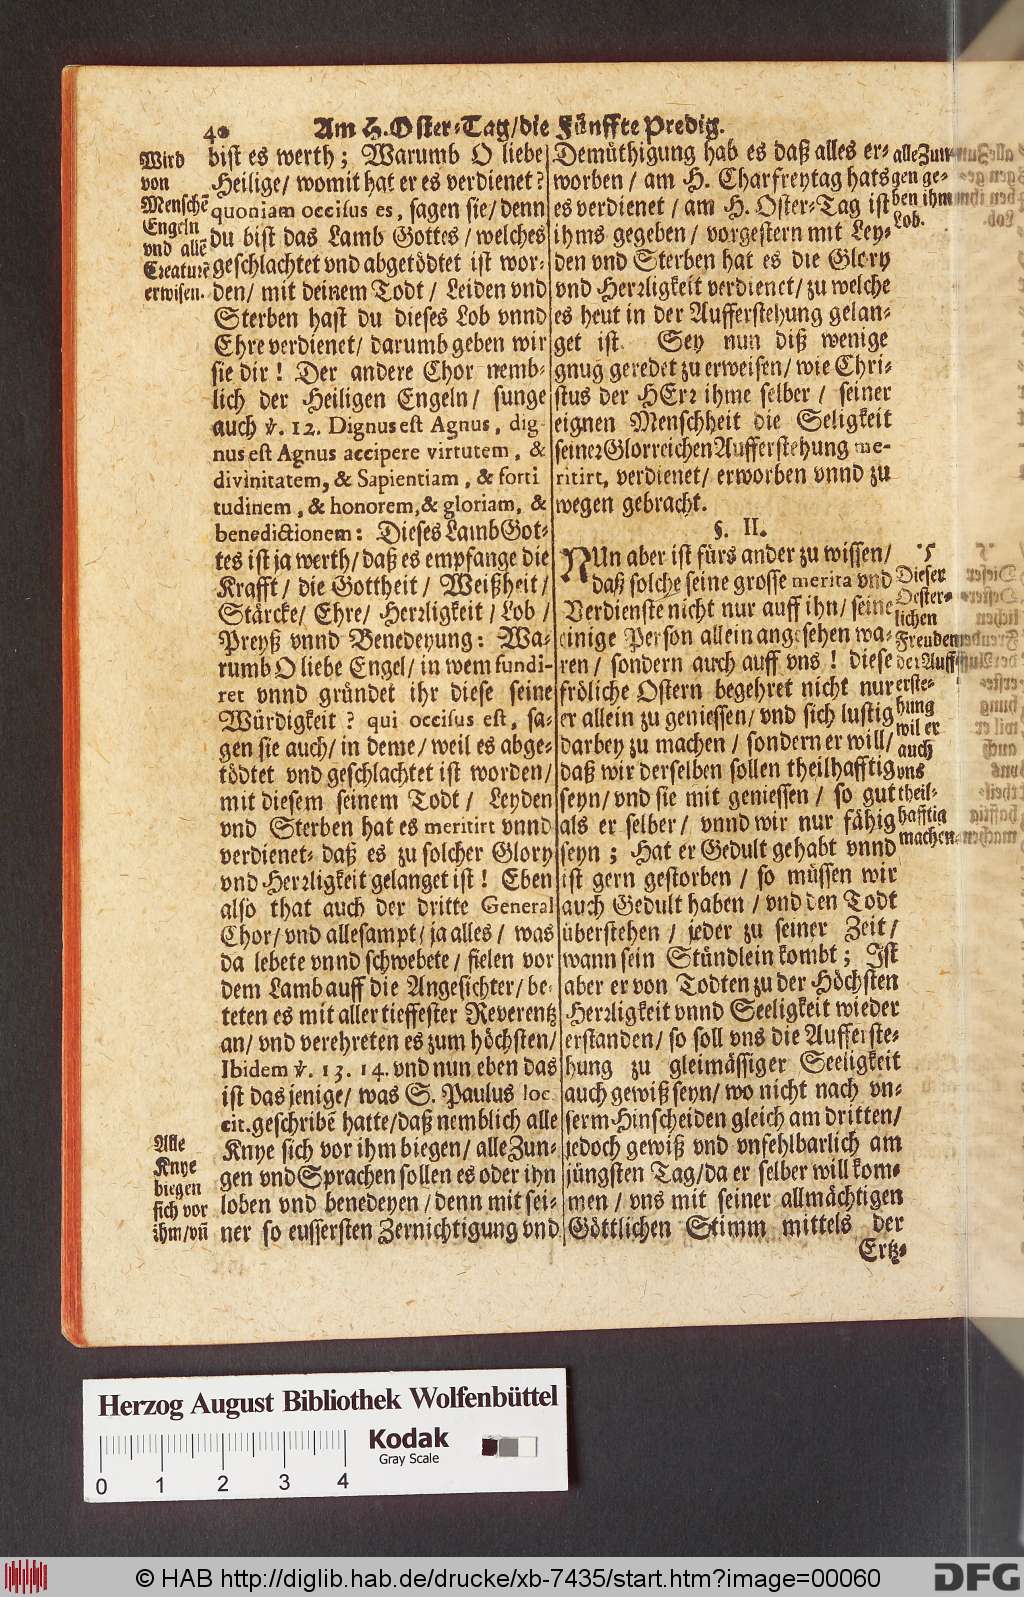 40
Am H. Oster-Tag/die Fünffte Predig.
Wird
von
Menschē
Engeln
vnd allē
Creaturē
erwisen.
bist es werth; Warumb O liebe
Heilige/ womit hat er es verdienet?
quoniam occisus es, sagen sie/ denn
du bist das Lamb Gottes/ welches
geschlachtet vnd abgetödtet ist wor-
den/ mit deinem Todt/ Leiden vnd
Sterben hast du dieses Lob vnnd
Ehre verdienet/ darumb geben wir
sie dir! Der andere Chor nemb-
lich der Heiligen Engeln/ sunge
auch ℣. 12. Dignus est Agnus, dig-
nus est Agnus accipere virtutem, &
divinitatem, & Sapientiam, & forti
tudinem, & honorem, & gloriam, &
benedictionem: Dieses Lamb Got-
tes ist ja werth/ daß es empfange die
Krafft/ die Gottheit/ Weißheit/
Stärcke/ Ehre/ Herꝛligkeit/ Lob/
Preyß vnnd Benedeyung: Wa-
rumb O liebe Engel/ in wem fundi-
ret vnnd gründet ihr diese seine
Würdigkeit? qui occisus est, sa-
gen sie auch/ in deme/ weil es abge-
tödtet vnd geschlachtet ist worden/
mit diesem seinem Todt/ Leyden
vnd Sterben hat es meritirt vnnd
verdienet- daß es zu solcher Glory
vnd Herꝛligkeit gelanget ist! Eben
also that auch der dritte General
Chor/ vnd allesampt/ ja alles/ was
da lebete vnnd schwebete/ fielen vor
dem Lamb auff die Angesichter/ be-
teten es mit aller tieffester Reverentz
an/ vnd verehreten es zum höchsten/
Ibidem ℣. 13. 14. vnd nun eben das
ist das jenige/ was S. Paulus loc.
cit. geschribē hatte/ daß nemblich alle
Knye sich vor ihm biegen/ alle Zun-
gen vnd Sprachen sollen es oder ihn
loben vnd benedeyen/ denn mit sei-
ner so eussersten Zernichtigung vnd
Alle
Knye
biegen
sich vor
ihm/ vñ
Demüthigung hab es daß alles er-
worben/ am H. Charfreytag hats
es verdienet/ am H. Oster-Tag ist
ihms gegeben/ vorgestern mit Ley-
den vnd Sterben hat es die Glory
vnd Herꝛligkeit verdienet/ zu welche
es heut in der Aufferstehung gelan-
get ist. Sey nun diß wenige
gnug geredet zu erweisen/ wie Chri-
stus der HErꝛ ihme selber/ seiner
eignen Menschheit die Seligkeit
seineꝛ Glorreichen Aufferstehung me-
ritirt, verdienet/ erworben vnnd zu
wegen gebracht.
§. II.
NUn aber ist fürs ander zu wissen/
daß solche seine grosse merita vnd
Verdienste nicht nur auff ihn/ seine
einige Person allein angesehen wa-
ren/ sondern auch auff vns! diese
fröliche Ostern begehret nicht nur
er allein zu geniessen/ vnd sich lustig
darbey zu machen/ sondern er will/
daß wir derselben sollen theilhafftig
seyn/ vnd sie mit geniessen/ so gut
als er selber/ vnnd wir nur fähig
seyn; Hat er Gedult gehabt vnnd
ist gern gestorben/ so müssen wir
auch Gedult haben/ vnd den Todt
überstehen/ jeder zu seiner Zeit/
wann sein Stündlein kombt; Ist
aber er von Todten zu der Höchsten
Herꝛligkeit vnnd Seeligkeit wieder
erstanden/ so soll vns die Aufferste-
hung zu gleimässiger Seeligkeit
auch gewiß seyn/ wo nicht nach vn-
serm Hinscheiden gleich am dritten/
jedoch gewiß vnd vnfehlbarlich am
jüngsten Tag/ da er selber will kom-
men/ vns mit seiner allmächtigen
Göttlichen Stimm mittels der
Ertz-
alle Zun-
gen ge-
ben ihm
Lob.
5
Dieser
Oester-
lichen
Freuden
der Auff-
erste-
hung
wil er
auch
vns
theil-
hafftig
machen.
Herzog August Bibliothek Wolfenbüttel
Kodak
Gray Scale
0 1 2 3 4
© HAB http://diglib.hab.de/drucke/xb-7435/start.htm?image=00060
DFG